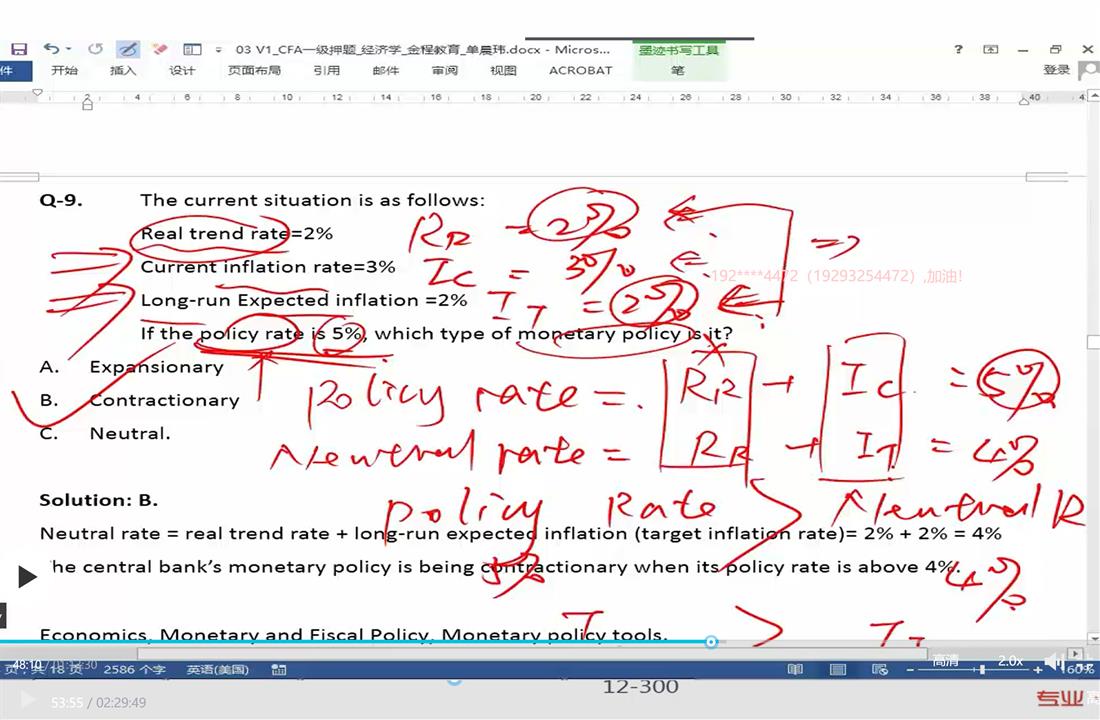 03 V1_CFA一级押题_经济学_金程教育_单晨玮.docx - Micros...
墨迹书写工具
件 开始 插入 设计 页面布局 引用 邮件 审阅 视图 ACROBAT 笔 登录
2 4 6 8 10 12 14 16 18 20 22 24 26 28 30 32 34 36 38 40
Q-9. The current situation is as follows:
Real trend rate=2% RR = 2%
Current inflation rate=3% Ic = 3%
192****4472（19293254472）,加油!
Long-run Expected inflation =2% IT = 2%
If the policy rate is 5%, which type of monetary policy is it?
A. Expansionary
Policy rate = RR + Ic = 5%
B. Contractionary
C. Neutral.
Neutral rate = RR + IT = 4%
Solution: B.
Policy Rate > Neutral R
Neutral rate = real trend rate + long-run expected inflation (target inflation rate)= 2% + 2% = 4%
he central bank's monetary policy is being contractionary when its policy rate is above 4%.
5% 4%
Economics, Monetary and Fiscal Policy, Monetary policy tools.
48:10
高清 2.0x
页，共 18 页 2586 个字 英语(美国) 160%
12-300
53:55 / 02:29:49
专业